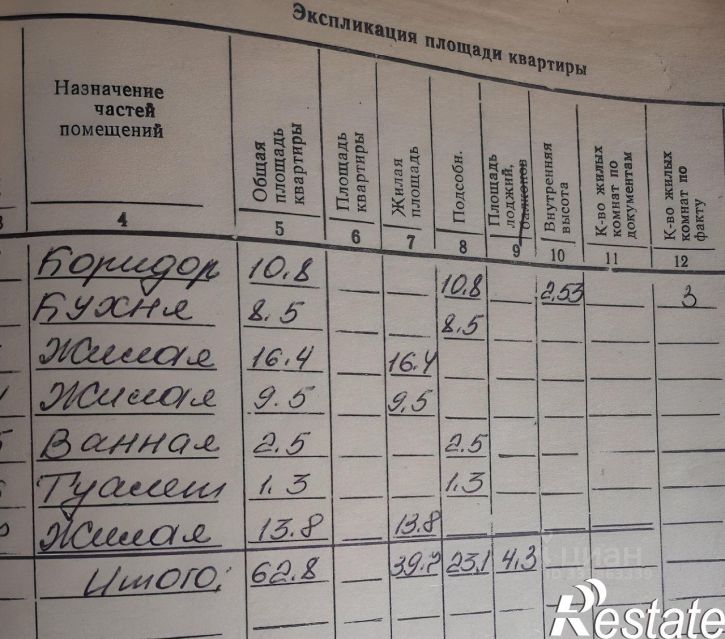 Экспликация площади квартиры
Назначение частей помещений
Общая площадь квартиры
Площадь квартиры
Жилая площадь
Подсобн.
Площадь лоджий, балконов
Внутренняя высота
К-во жилых комнат по документам
К-во жилых комнат по факту
3 4 5 6 7 8 9 10 11 12
Коридор 10.8 10.8 2.53 3
Кухня 8.5 8.5
Жилая 16.4 16.4
Жилая 9.5 9.5
Ванная 2.5 2.5
Туалет 1.3 1.3
Жилая 13.8 13.8
Итого: 62.8 39.7 23,1 4,3
циан
Restate